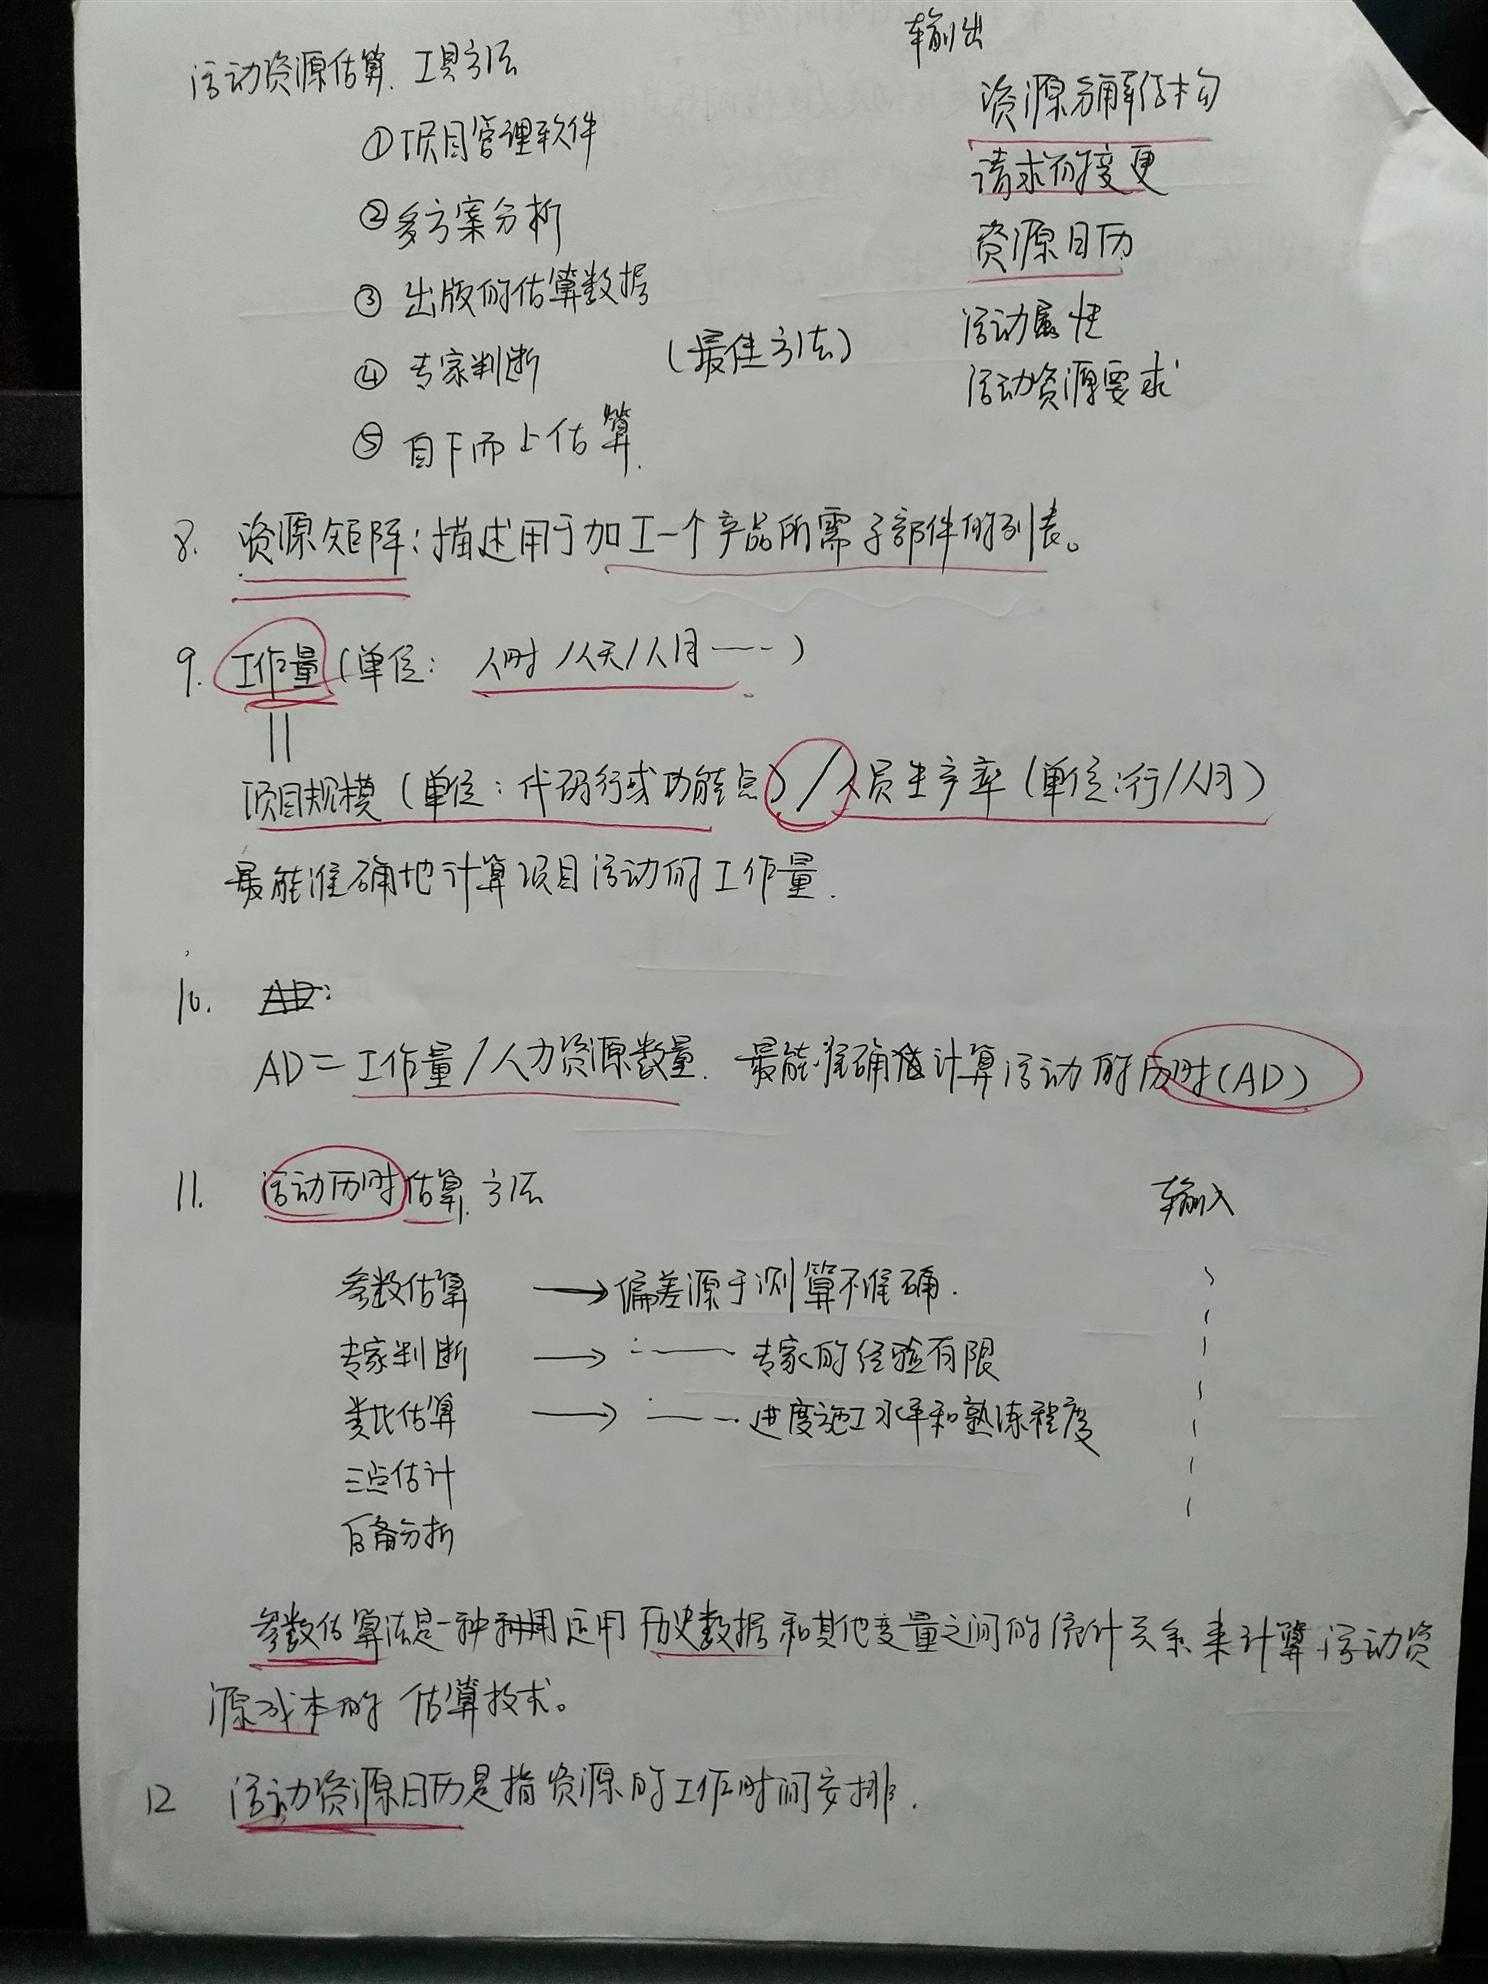 输出
活动资源估算 工具方法
资源分解结构
①项目管理软件
请求的变更
②多方案分析
资源日历
③ 出版的估算数据
活动属性
④ 专家判断 (最佳方法)
活动资源要求
⑤ 自下而上估算.
8. 资源矩阵:描述用于加工一个产品所需子部件的列表。
9. 工作量(单位: 人时/人天/人月……)
||
项目规模(单位:代码行或功能点)/人员生产率(单位:行/人月)
最能准确地计算项目活动的工作量.
10. AD:
AD=工作量/人力资源数量. 最能准确 计算活动的历时(AD)
11. 活动历时估算方法
输入
参数估算 → 偏差源于测算不准确.
专家判断 → …… 专家的经验有限
类比估算 → …… 进度施工水平和熟练程度
三点估计
后备分析
参数估算法是一种利用运用历史数据和其他变量之间的统计关系来计算活动资
源成本的估算技术。
12 活动资源日历是指资源的工作时间安排.